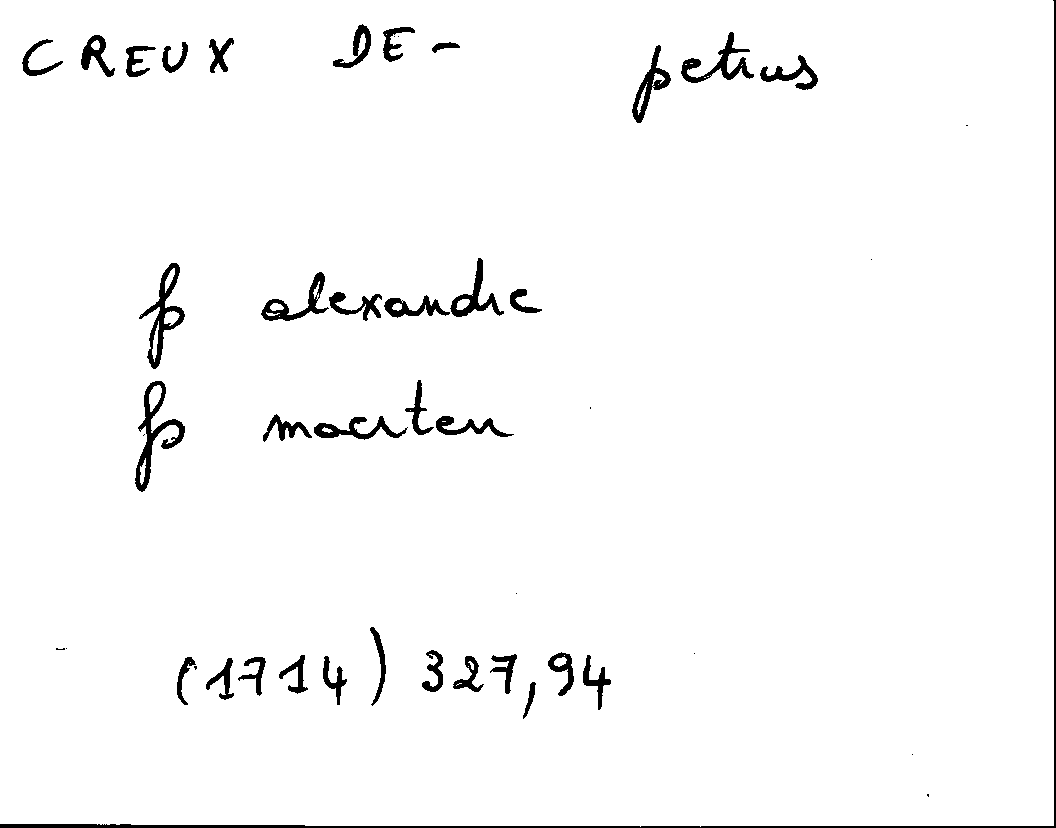 CREUX DE- petrus
fs alexandre
fs maerten
(1714) 327,94